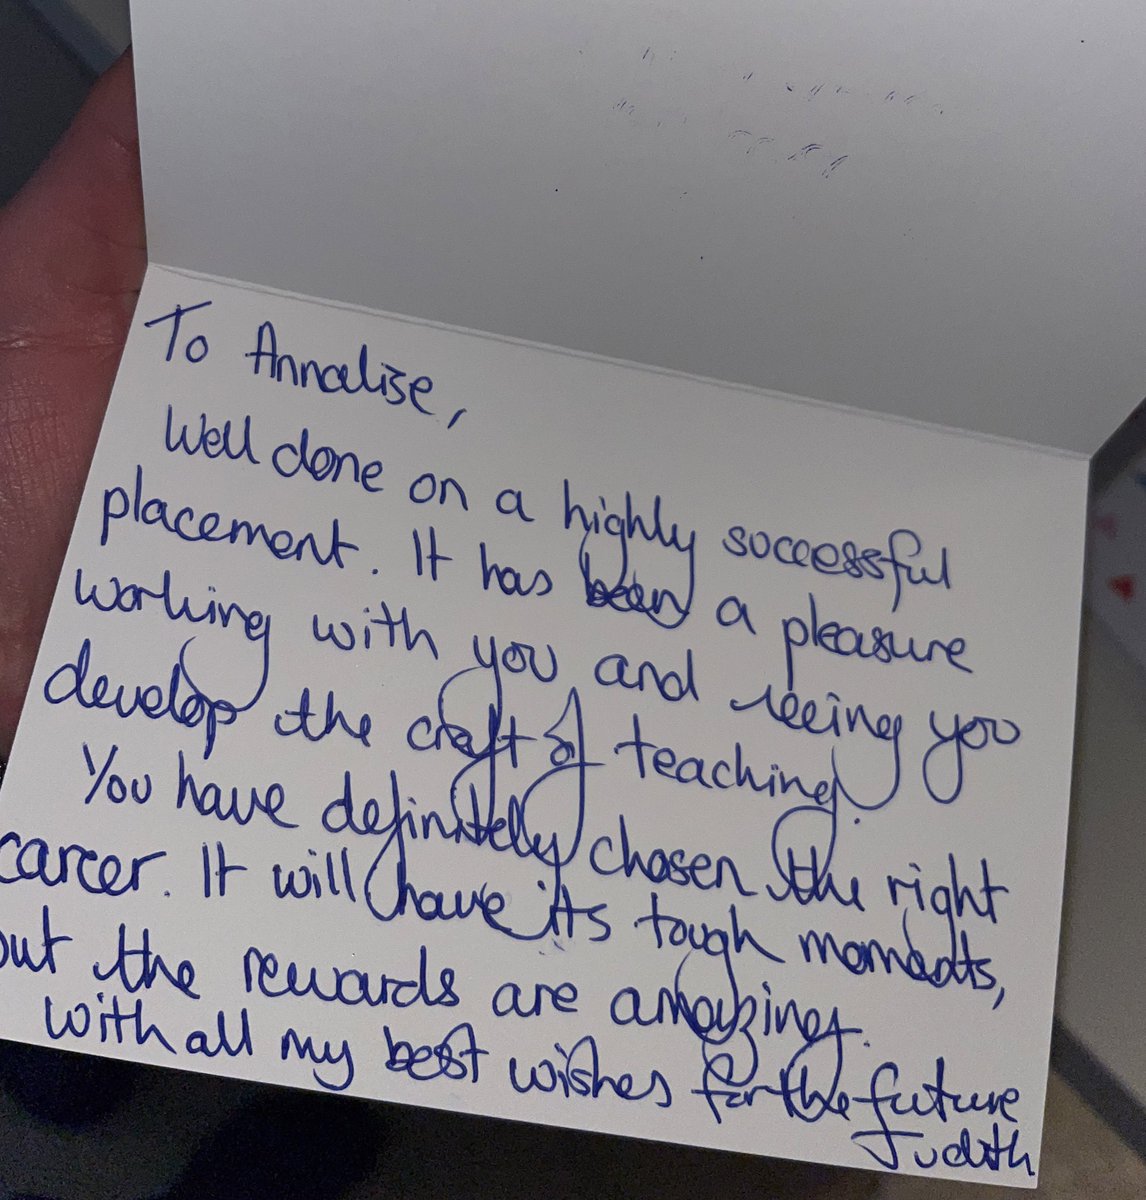 To Annalise,
Well done on a highly successful
placement. It has been a pleasure
working with you and seeing you
develop the craft of teaching.
You have definitely chosen the right
career. It will have its tough moments,
but the rewards are amazing.
With all my best wishes for the future
Judith